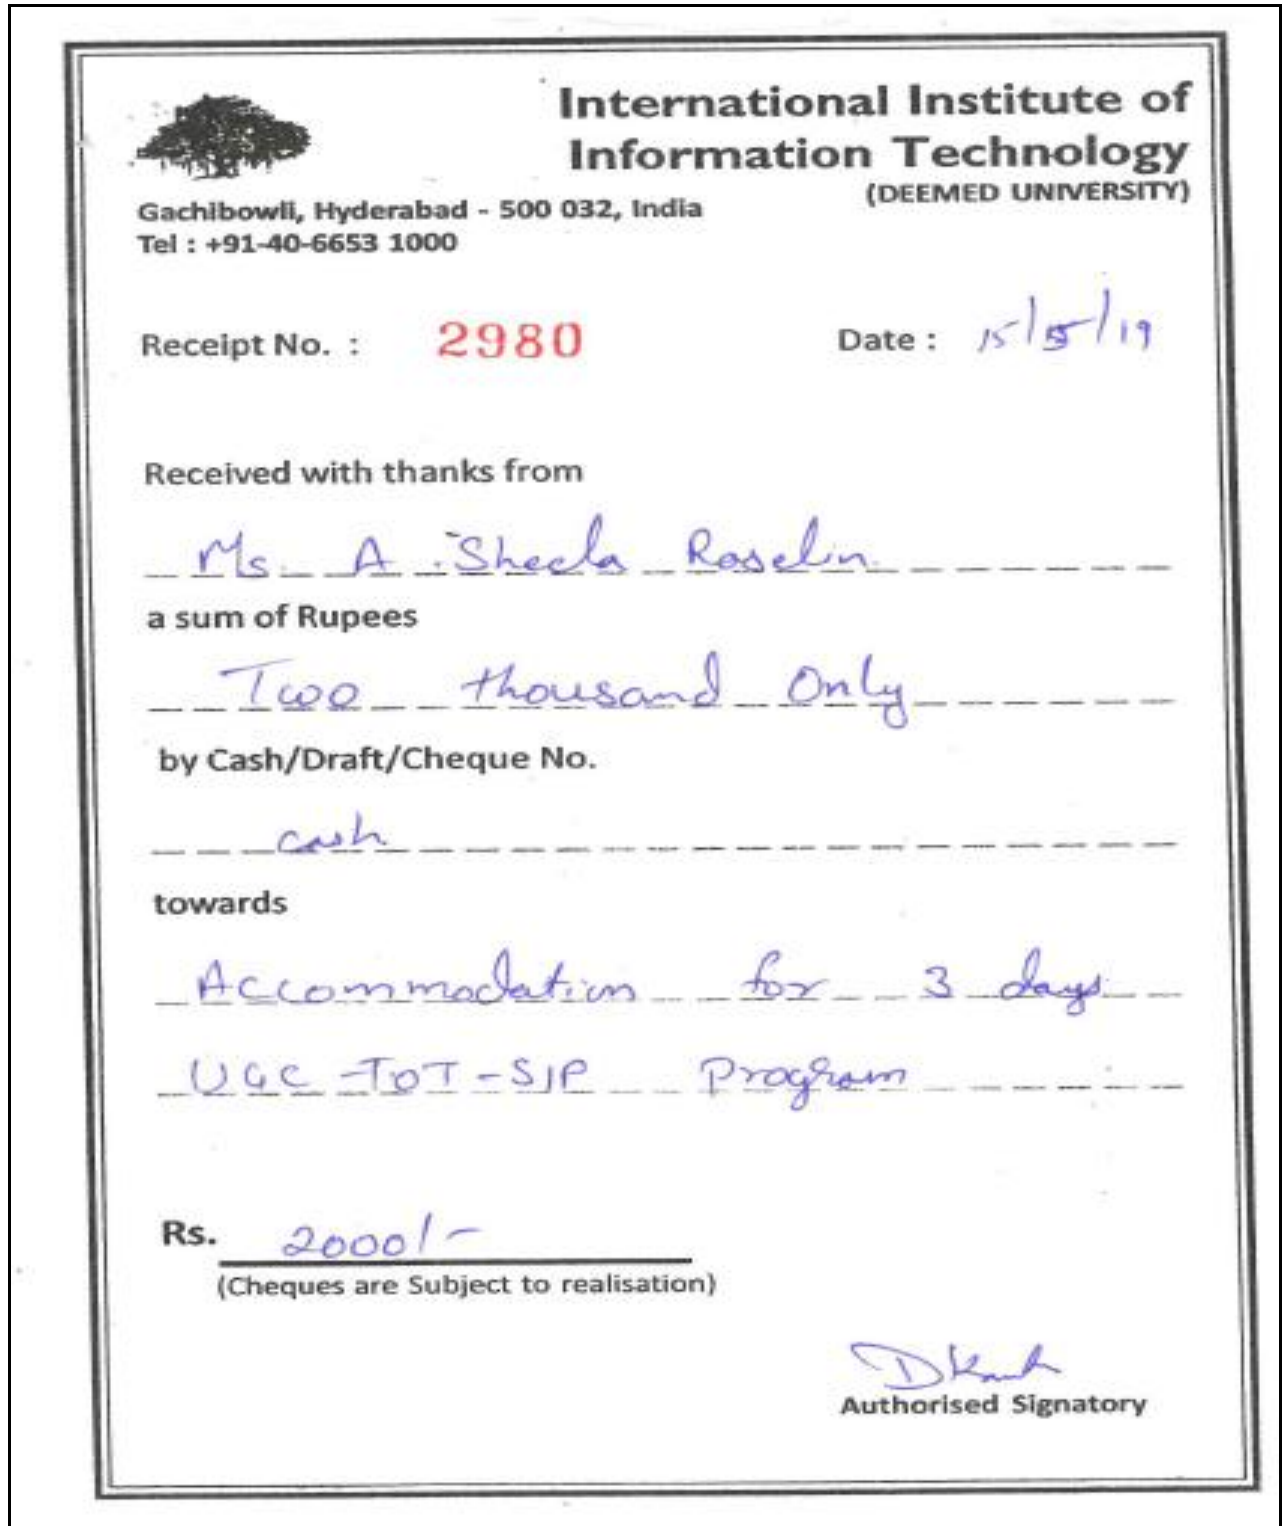 International Institute of
Information Technology
(DEEMED UNIVERSITY)
Gachibowli, Hyderabad - 500 032, India
Tel : +91-40-6653 1000
Receipt No. : 2980 Date : 15/5/19
Received with thanks from
Ms. A. Sheela Roselin
a sum of Rupees
Two thousand Only
by Cash/Draft/Cheque No.
cash
towards
Accommodation for 3 days
UGC-TOT-SIP Program
Rs. 2000/-
(Cheques are Subject to realisation)
Authorised Signatory